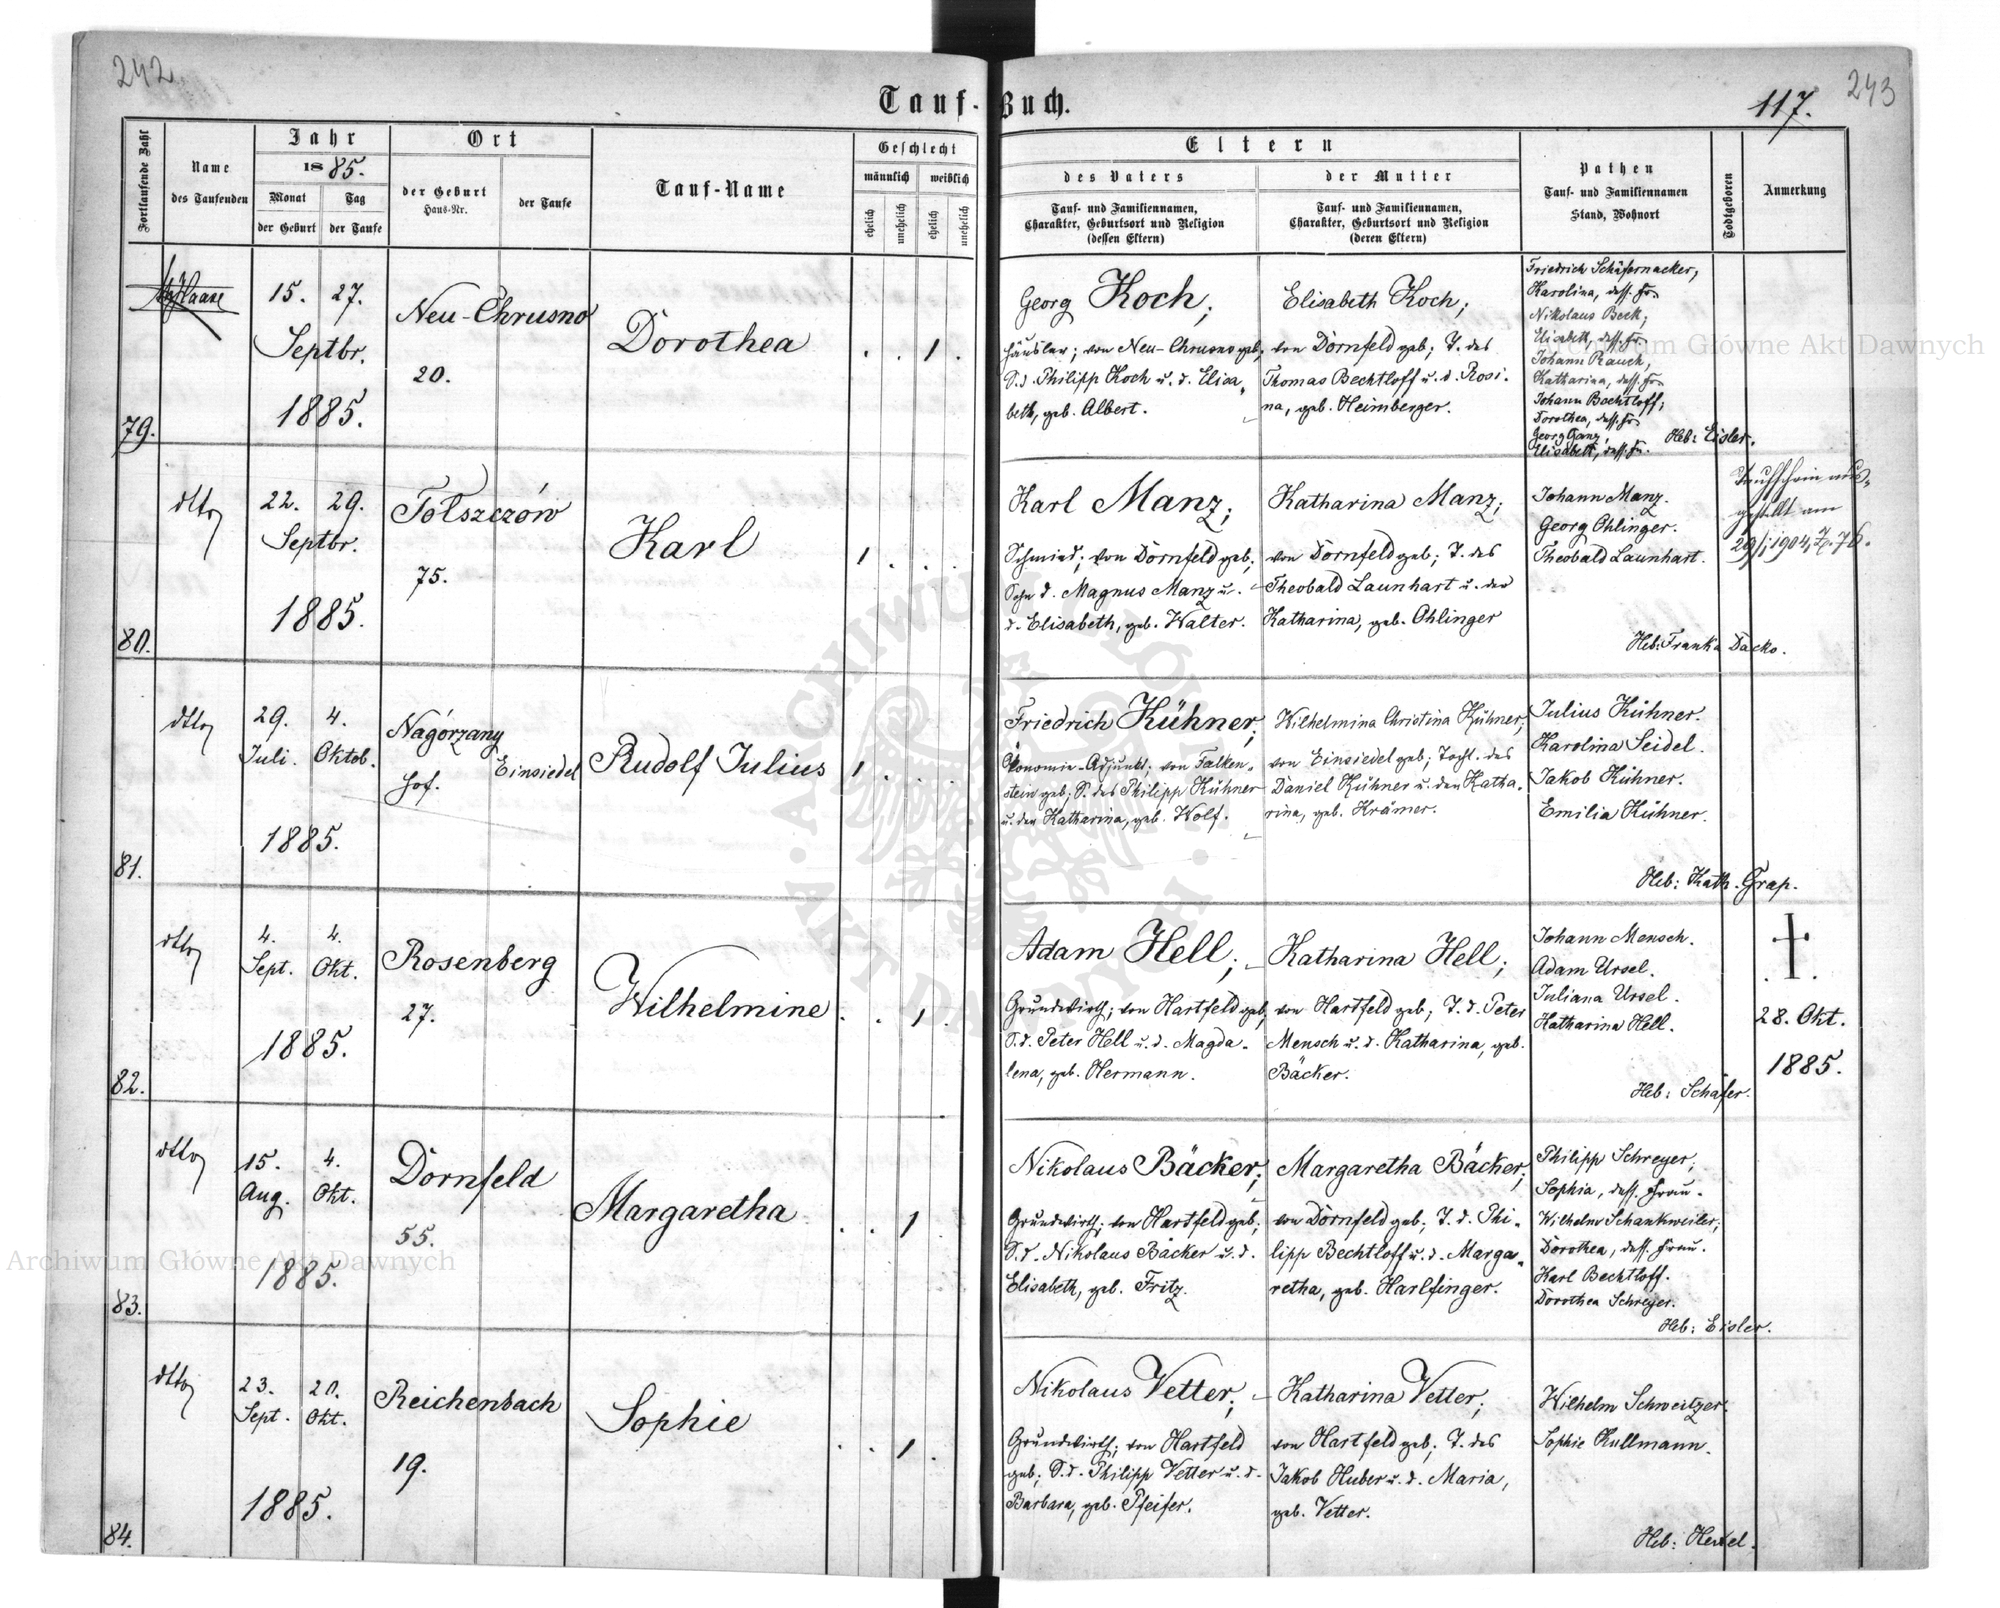 242.
243
Tauf-Buch.
117.
Fortlaufende Zahl
Name
des Taufenden
Jahr
1885.
Monat
der Geburt
Tag
der Taufe
Ort
der Geburt
Haus-Nr.
der Taufe
Tauf-Name
Geschlecht
männlich
weiblich
ehelich
unehelich
ehelich
unehelich
Eltern
des Vaters
Tauf- und Familiennamen,
Charakter, Geburtsort und Religion
(dessen Eltern)
der Mutter
Tauf- und Familiennamen,
Charakter, Geburtsort und Religion
(deren Eltern)
Pathen
Tauf- und Familiennamen
Stand, Wohnort
Todtgeboren
Anmerkung
79.
15. 27.
Septbr.
1885.
Neu-Chrusno
20.
Dorothea
1
Georg Koch;
Häusler; von Neu-Chrusno geb;
S.d. Philipp Koch u. d. Elisa-
beth, geb. Albert.
Elisabeth Koch;
von Dornfeld geb; T. des
Thomas Bechtloff u. d. Rosi-
na, geb. Heimberger.
Friedrich Schäfernacker,
Karolina, dess. Fr.
Nikolaus Beck;
Elisabeth, dess. Fr.
Johann Rauch;
Katharina, dess. Fr.
Johann Bechtloff;
Dorothea, dess. Fr.
Georg Ganz,
Elisabeth, dess. Fr.
Heb: Eisler.
80.
dtto
22. 29.
Septbr.
1885.
Tołszczów
75.
Karl
1
Karl Manz;
Schmied; von Dornfeld geb;
Sohn d. Magnus Manz u.
d. Elisabeth, geb. Walter.
Katharina Manz;
von Dornfeld geb; T. des
Theobald Launhart u. der
Katharina, geb. Ohlinger
Johann Manz.
Georg Ohlinger.
Theobald Launhart.
Heb: Franka Dacko.
Taufschein aus-
gestellt am
29/i 1904, Z. 76.
81.
dtto
29. 4.
Juli. Oktob.
1885.
Nagórzany
Hof.
Einsiedel
Rudolf Julius
1
Friedrich Kühner;
Ökonomie-Adjunkt; von Falken-
stein geb; S. des Philipp Kühner
u. der Katharina, geb. Wolf.
Wilhelmina Christina Kühner;
von Einsiedel geb; Tocht. des
Daniel Kühner u. der Katha-
rina, geb. Krämer.
Julius Kühner.
Karolina Seidel.
Jakob Kühner.
Emilia Kühner.
Heb: Kath. Grap.
82.
dtto
4. 4.
Sept. Okt.
1885.
Rosenberg
27.
Wilhelmine
1
Adam Hell;
Grundwirth; von Hartfeld geb;
S.d. Peter Hell u. d. Magda-
lena, geb. Hermann.
Katharina Hell;
von Hartfeld geb; T. d. Peter
Mensch u. d. Katharina, geb.
Bäcker.
Johann Mensch.
Adam Ursel.
Juliana Ursel.
Katharina Hell.
Heb: Schäfer.
28. Okt.
1885.
83.
dtto
15. 4.
Aug. Okt.
1885.
Dornfeld
55.
Margaretha
1
Nikolaus Bäcker;
Grundwirth; von Hartfeld geb;
S.d. Nikolaus Bäcker u. d.
Elisabeth, geb. Fritz.
Margaretha Bäcker;
von Dornfeld geb; T. d. Phi-
lipp Bechtloff u. d. Marga-
retha, geb. Harlfinger.
Philipp Schreyer;
Sophia, dess. Frau.
Wilhelm Schankweiler;
Dorothea, dess. Frau.
Karl Bechtloff.
Dorothea Schreyer.
Heb: Eisler.
84.
dtto
23. 20.
Sept. Okt.
1885.
Reichenbach
19.
Sophie
1
Nikolaus Vetter;
Grundwirth; von Hartfeld
geb; S.d. Philipp Vetter u. d.
Barbara, geb. Pfeifer.
Katharina Vetter;
von Hartfeld geb; T. des
Jakob Huber u. d. Maria,
geb. Vetter.
Wilhelm Schweitzer.
Sophie Kullmann.
Heb: Hexel.
Archiwum Główne Akt Dawnych
Archiwum Główne Akt Dawnych
ARCHIWUM GŁÓWNE AKT DAWNYCH